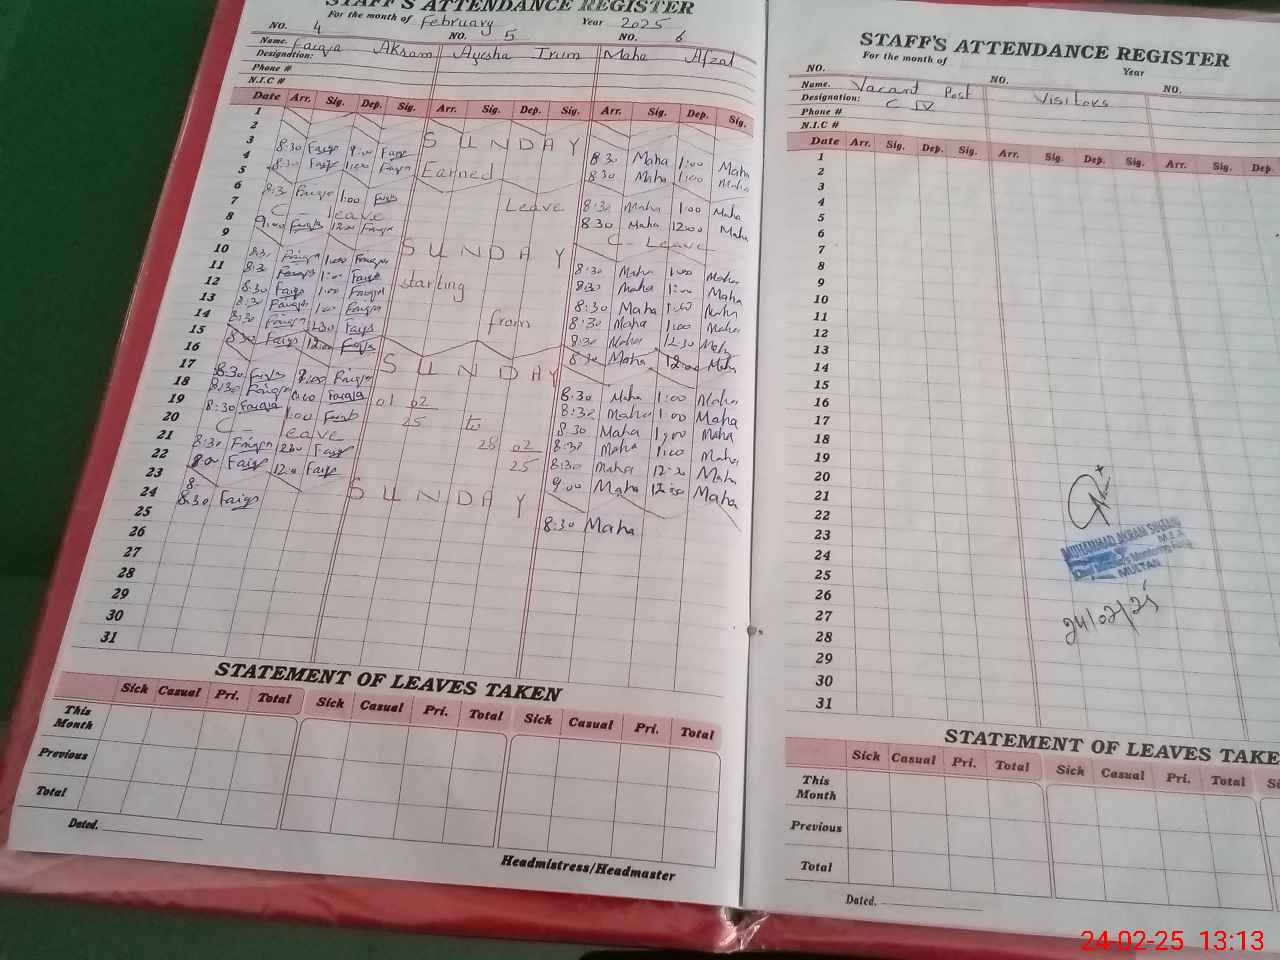 STAFF'S ATTENDANCE REGISTER
For the month of February Year 2025
NO. 4 NO. 5 NO. 6
Name. Faiqa Akram Ayesha Irum Maha Afzal
Designation:
Phone #
N.I.C #
Date Arr. Sig. Dep. Sig. Arr. Sig. Dep. Sig. Arr. Sig. Dep. Sig.
1
2 SUNDAY
3 8:30 Faiqa Faiqa 8:30 Maha 1:00 Maha
4 8:30 Faiqa 1:00 Faiqa Earned 8:30 Maha 1:00 Maha
5
6 8:30 Faiqa 1:00 Faiqa Leave 8:30 Maha 1:00 Maha
7 C - leave 8:30 Maha 12:00 Maha
8 9:00 Faiqa 12:00 Faiqa C - Leave
9 SUNDAY
10 8:30 Faiqa 1:00 Faiqa 8:30 Maha 1:00 Maha
11 8:30 Faiqa 1:00 Faiqa starting 8:30 Maha 1:00 Maha
12 8:30 Faiqa 1:00 Faiqa 8:30 Maha 1:00 Maha
13 8:30 Faiqa 1:00 Faiqa from 8:30 Maha 1:00 Maha
14 8:30 Faiqa 12:30 Faiqa 8:30 Maha 12:30 Maha
15 8:30 Faiqa 12:00 Faiqa 8:30 Maha 12:00 Maha
16 SUNDAY
17 8:30 Faiqa Faiqa 8:30 Maha 1:00 Maha
18 8:30 Faiqa 1:00 Faiqa 01 02 8:30 Maha 1:00 Maha
19 8:30 Faiqa 1:00 Faiqa 25 to 8:30 Maha 1:00 Maha
20 C - leave 28 02 8:30 Maha 1:00 Maha
21 8:30 Faiqa 12:30 Faiqa 25 8:30 Maha 12:30 Maha
22 Faiqa 12:00 Faiqa 9:00 Maha 12:00 Maha
23 8: SUNDAY
24 8:30 Faiqa 8:30 Maha
25
26
27
28
29
30
31
STATEMENT OF LEAVES TAKEN
Sick Casual Pri. Total Sick Casual Pri. Total Sick Casual Pri. Total
This Month
Previous
Total
Dated.
Headmistress/Headmaster
STAFF'S ATTENDANCE REGISTER
For the month of Year
NO. NO. NO.
Name. Vacant Post Visitors
Designation: C IV
Phone #
N.I.C #
Date Arr. Sig. Dep. Sig. Arr. Sig. Dep. Sig. Arr. Sig. Dep.
1
2
3
4
5
6
7
8
9
10
11
12
13
14
15
16
17
18
19
20
21
22
23
24
25
26
27
28
29
30
31
MUHAMMAD AKRAM
M.E.A
MULTAN
24/02/25
STATEMENT OF LEAVES TAKE
Sick Casual Pri. Total Sick Casual Pri. Total Si
This Month
Previous
Total
Dated.
24-02-25 13:13